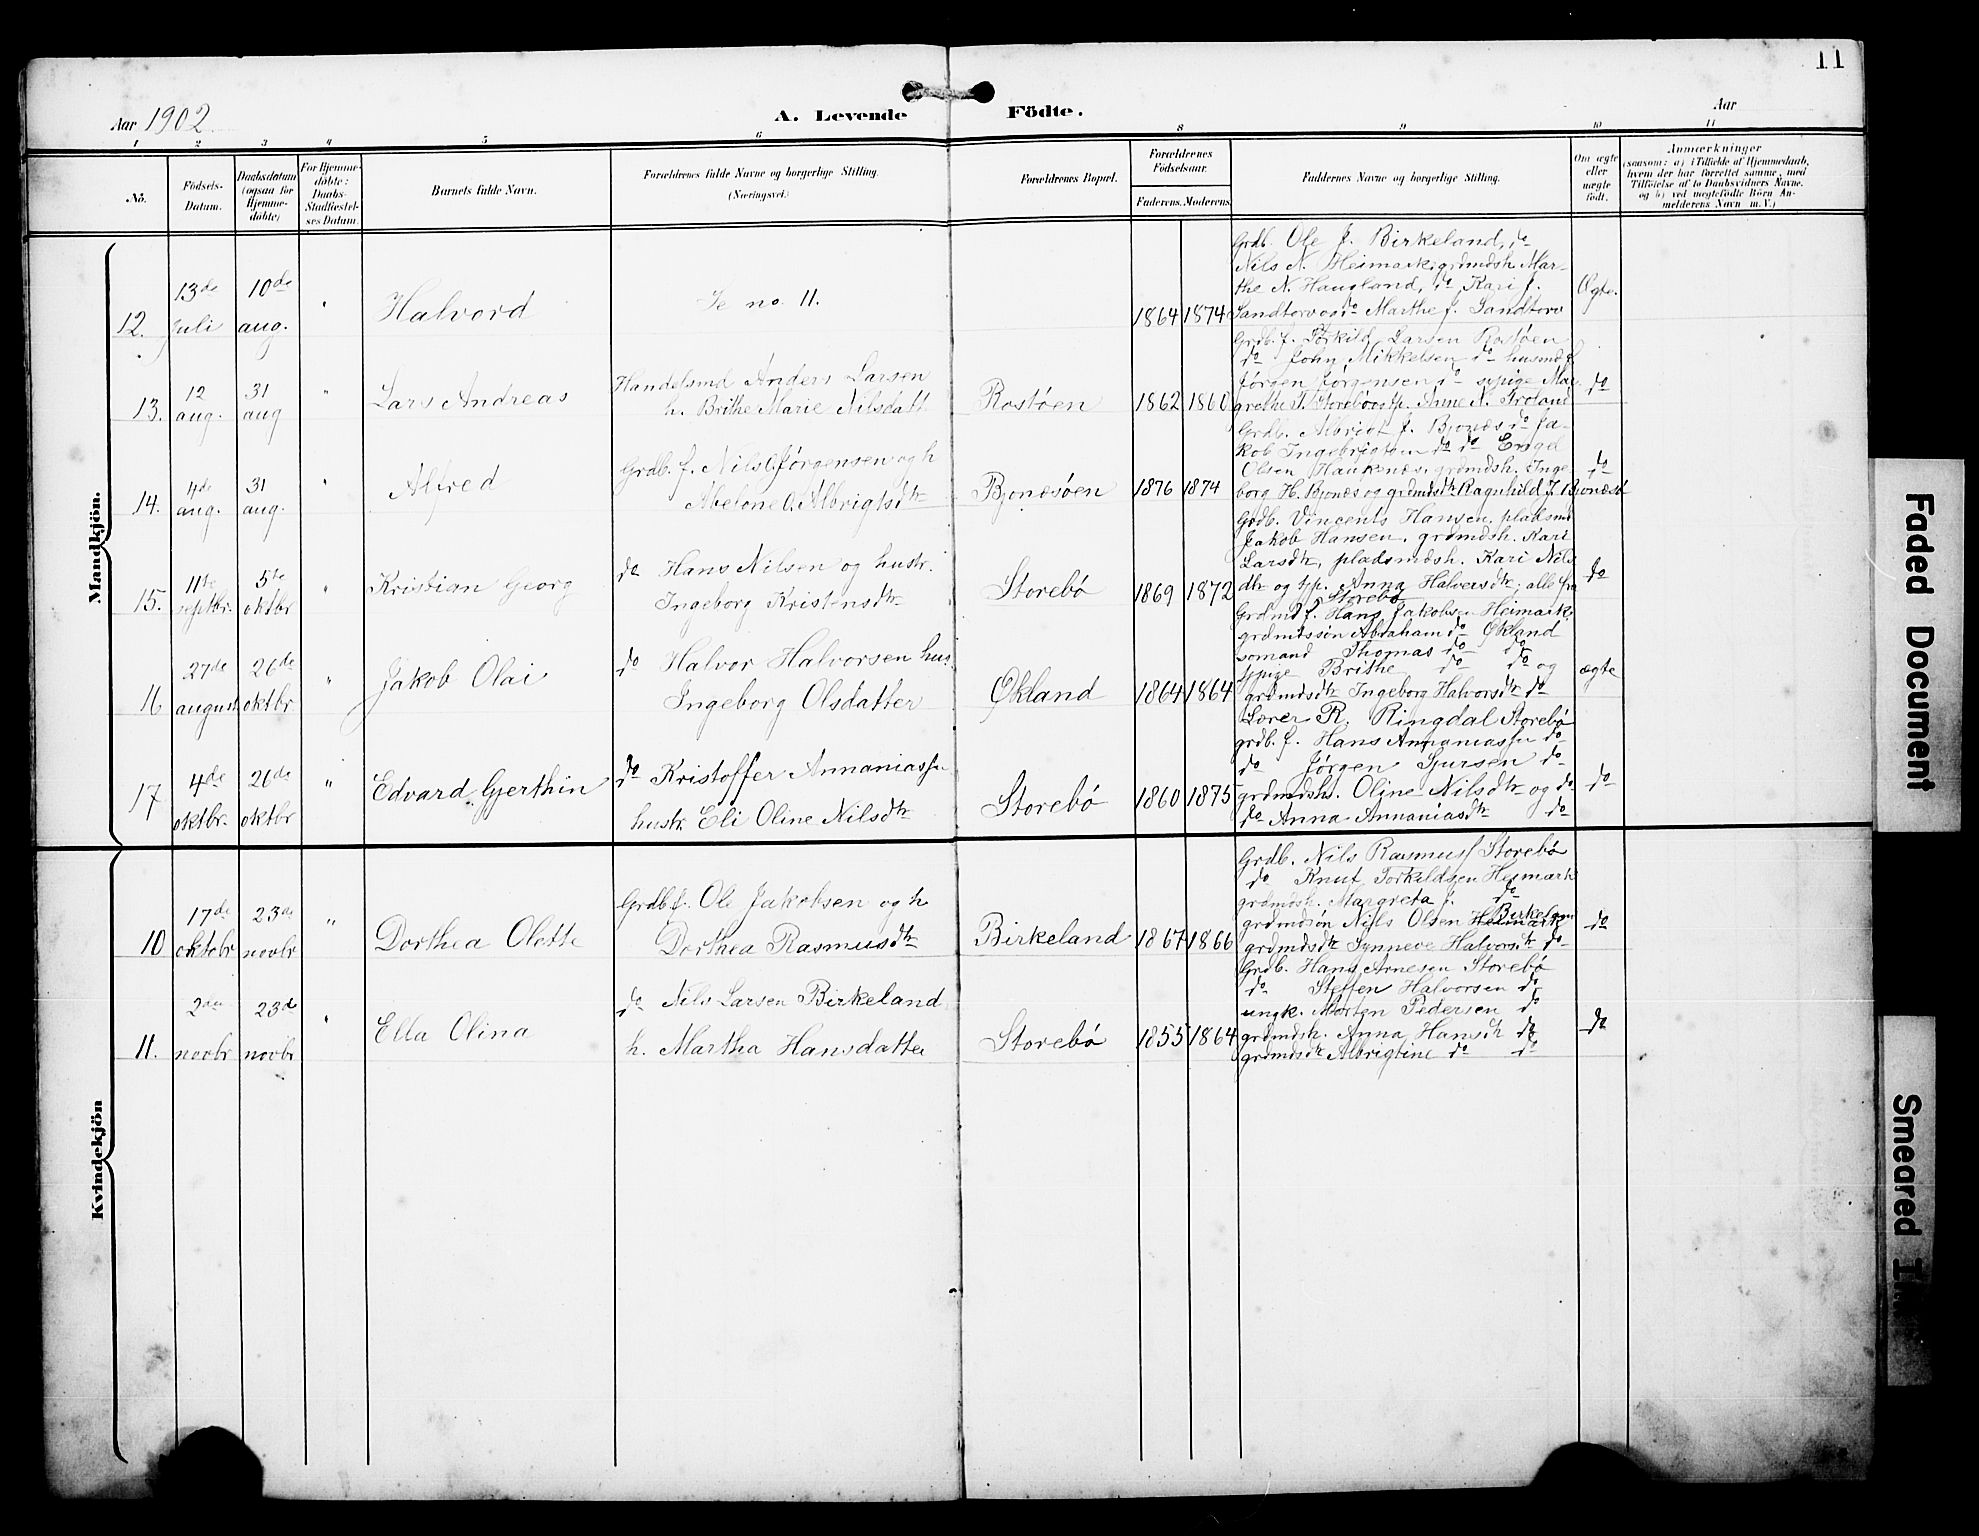 11
Aar 1902
A. Levende Födte.
Aar
1 2 3 4 5 6 8 9 10 11
No.
Födsels-
Datum.
Daabsdatum
(ogsaa for
Hjemme-
döbte)
For Hjemme-
döbte:
Daabs-
Stadfæstel-
ses Datum.
Barnets fulde Navn.
Forældrenes fulde Navne og borgerlige Stilling.
(Næringsvei.)
Forældrenes Bopæl.
Forældrenes
Födselsaar.
Faderens. Moderens.
Faddernes Navne og borgerlige Stilling.
Om ægte
eller
uægte
født.
Anmærkninger
(saasom: a) i Tilfælde af Hjemmedaab,
hvem der har forrettet samme, med
Tilföielse af to Daabsvidners Navne.
og b) ved uægtefödte Börn An-
melderens Navn m. V.)
Mandkjön.
12.
13de
juli
10de
aug.
"
Halvord
Se no 11.
1864 1874
Grdb. Ole J. Birkeland, do
Nils N. Heimark, grdmdsh. Mar-
the N. Haugland, do Kari J.
Sandtorv og do Marthe J. Sandtorv
Ægte.
13.
12
aug.
31
aug
"
Lars Andreas
Handelsmd Anders Larsen
h. Brithe Marie Nilsdatt.
Rostøen
1862 1860
Grdb. f. Torkild Larsen Rostøen
do John Mikkelsen do husmd f.
Jørgen Jørgensen do spige Mar-
grethe T. Storebø og tp. Anne N. Troland
do
14.
4de
aug.
31
aug.
"
Alfred
Grdb. f. Nils O. Jørgensen og h
Abelone O. Albrigtsdtr
Bjonæsøen
1876 1874
Grdb. Albrigt J. Bjonæs do Ja-
kob Ingebrigtsen do do Engel
Olsen Haukenæs, grdmdsh. Inge-
borg H. Bjonæs og grdmdsdtr Ragnhild J. Bjonæsø
do
15.
11te
septbr.
5te
oktbr
"
Kristian Georg
do Hans Nilsen og hustr.
Ingeborg Kristensdtr
Storebø
1869 1872
Grdb. Vincents Hansen, pladsmd
Jakob Hansen, grdmdsh. Kari
Larsdtr, pladsmdsh. Kari Nils-
dtr og tp. Anna Halversdtr; alle fra
Storebø
do
16
27de
august
26de
oktbr
"
Jakob Olai
do Halvor Halvorsen hus.
Ingeborg Olsdatter
Økland
1864 1864
Grdmd f. Hans Jakobsen Heimark,
grdmdssøn Abraham do Økland
sømand Thomas do do
tjpige Brithe do do og
grdmdsdtr Ingeborg Halvorsdtr do
ægte
17
4de
oktbr.
26de
oktbr
"
Edvard Gjerthin
do Kristoffer Annaniass̶en
hustr. Eli Oline Nilsdtr
Storebø
1860 1875
Lærer R. Ringdal Storebø
grdb. f. Hans Annaniassen do
do Jørgen Sjursen do
grdmdsh. Oline Nilsdtr og do
do Anna Annaniasdtr do
do
Kvindekjön
10
17de
oktobr
23de
novbr
"
Dorthea Olette
Grdb f. Ole Jakobsen og h
Dorthea Rasmusdtr
Birkeland
1867 1866
Grdb. Nils Rasmuss Storebø
do Knut Torkildsen Heimark
grdmdsh. Margreta J. do
grdmdsøn Nils Olsen Heimark Birkeland
grdmdsdtr Synneve Halvorsdtr do
do
11.
2den
novbr
23de
novbr
"
Ella Olina
do Nils Larsen Birkeland,
h. Martha Hansdatter
Storebø
1855 1864
Grdb. Hans Arnesen Storebø
do Steffen Halvorsen do
ungk. Morten Pedersen do
grdmdsh. Anna Hansdtr do
grdmdsdtr Albrigtine do do
do
Faded Document
Smeared